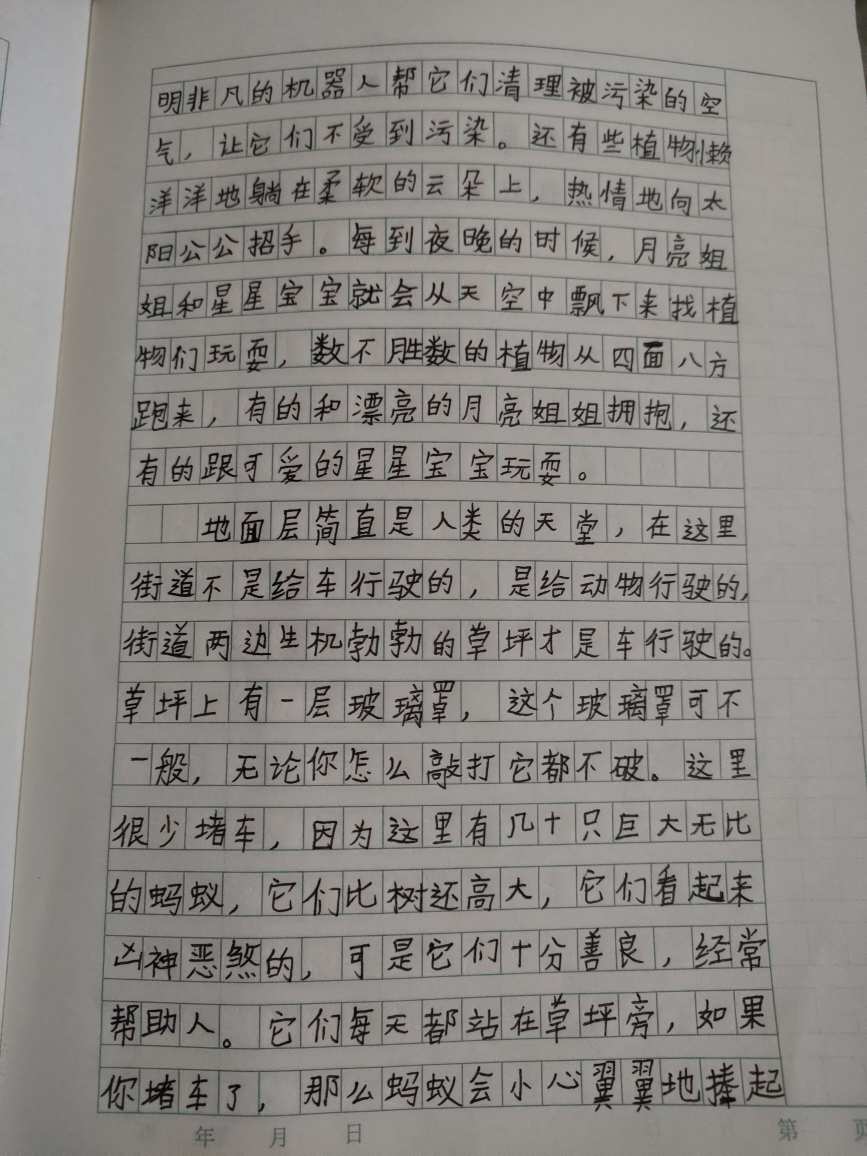 明非凡的机器人帮它们清理被污染的空
气，让它们不受到污染。还有些植物懒
洋洋地躺在柔软的云朵上，热情地向太
阳公公招手。每到夜晚的时候，月亮姐
姐和星星宝宝就会从天空中飘下来找植
物们玩耍，数不胜数的植物从四面八方
跑来，有的和漂亮的月亮姐姐拥抱，还
有的跟可爱的星星宝宝玩耍。
地面层简直是人类的天堂，在这里
街道不是给车行驶的，是给动物行驶的，
街道两边生机勃勃的草坪才是车行驶的。
草坪上有一层玻璃罩，这个玻璃罩可不
一般，无论你怎么敲打它都不破。这里
很少堵车，因为这里有几十只巨大无比
的蚂蚁，它们比树还高大，它们看起来
凶神恶煞的，可是它们十分善良，经常
帮助人。它们每天都站在草坪旁，如果
你堵车了，那么蚂蚁会小心翼翼地捧起
年 月 日 第 页